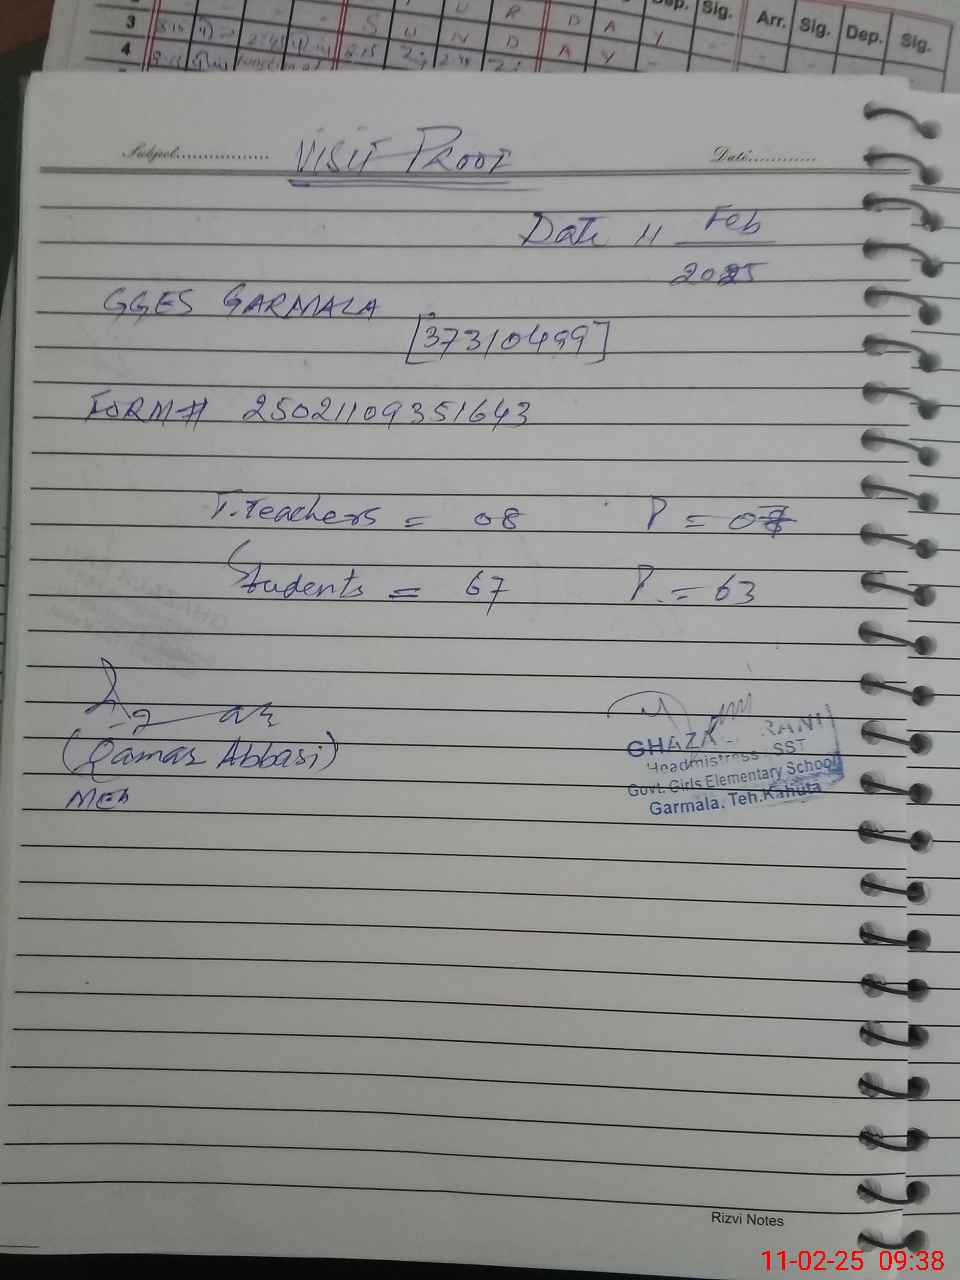 3
4
S U N D A Y
Sig.
Arr. Sig. Dep. Sig.
Subject................. VISIT PROOF Date............
Date 11 Feb
2025
GGES GARMALA
[37310499]
FORM# 25021109351643
T.Teachers = 08 P = 07
Students = 67 P. = 63
(Qamar Abbasi)
MEA
GHAZALA RANI
Headmistress SST
Govt. Girls Elementary School
Garmala. Teh.Kahuta
Rizvi Notes
11-02-25 09:38